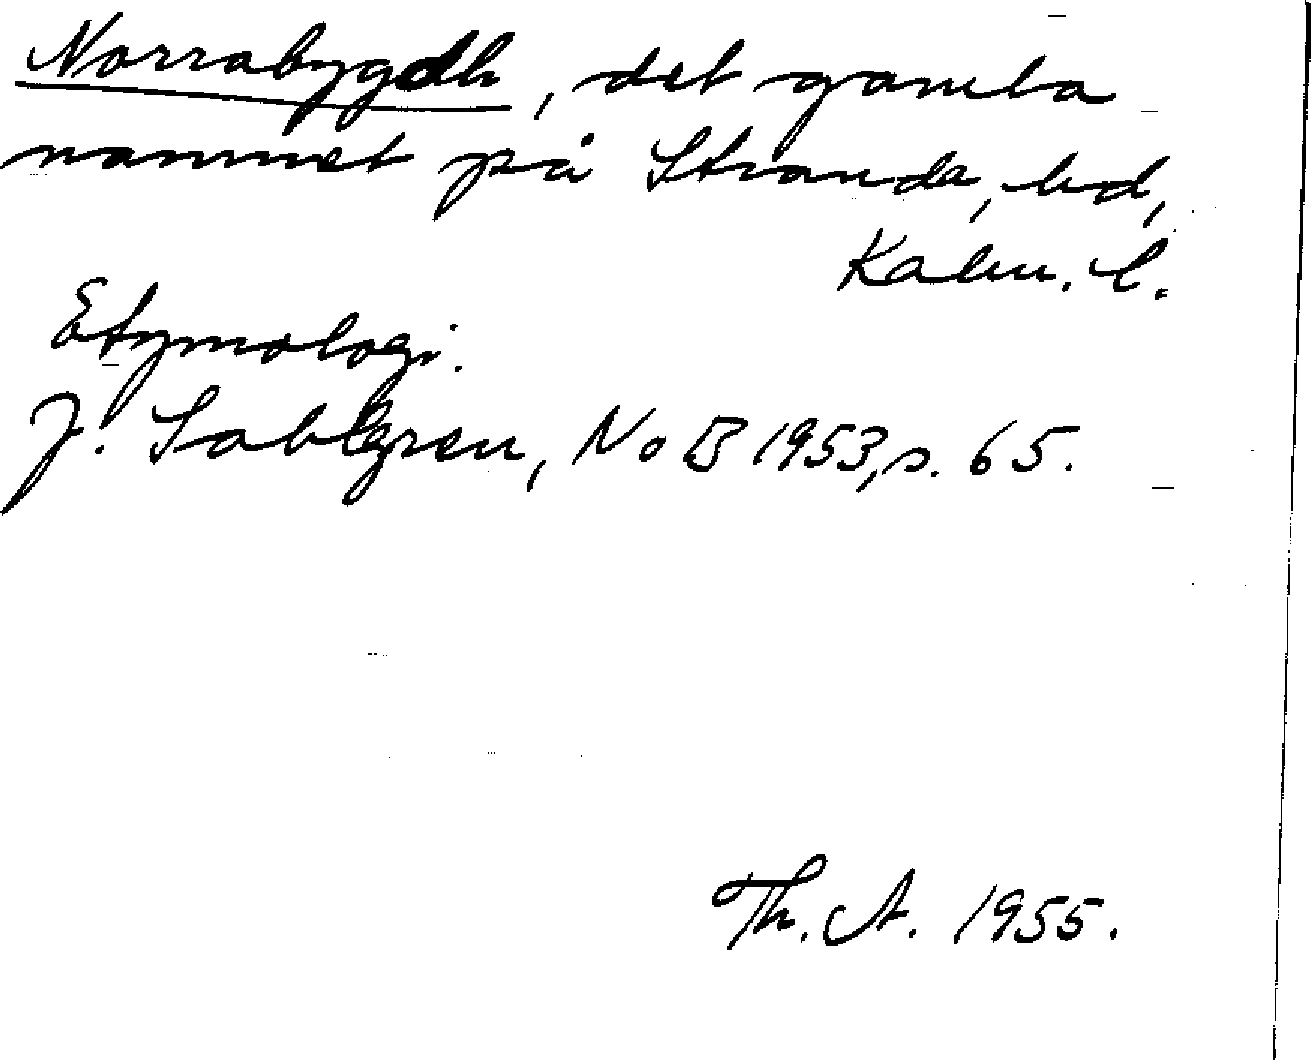 Norrabygdh, det gamla
namnet på Stranda, hd,
Kalm. l.
Etymologi.
J. Sahlgren, NoB 1953, s. 65.
Th. A. 1955.